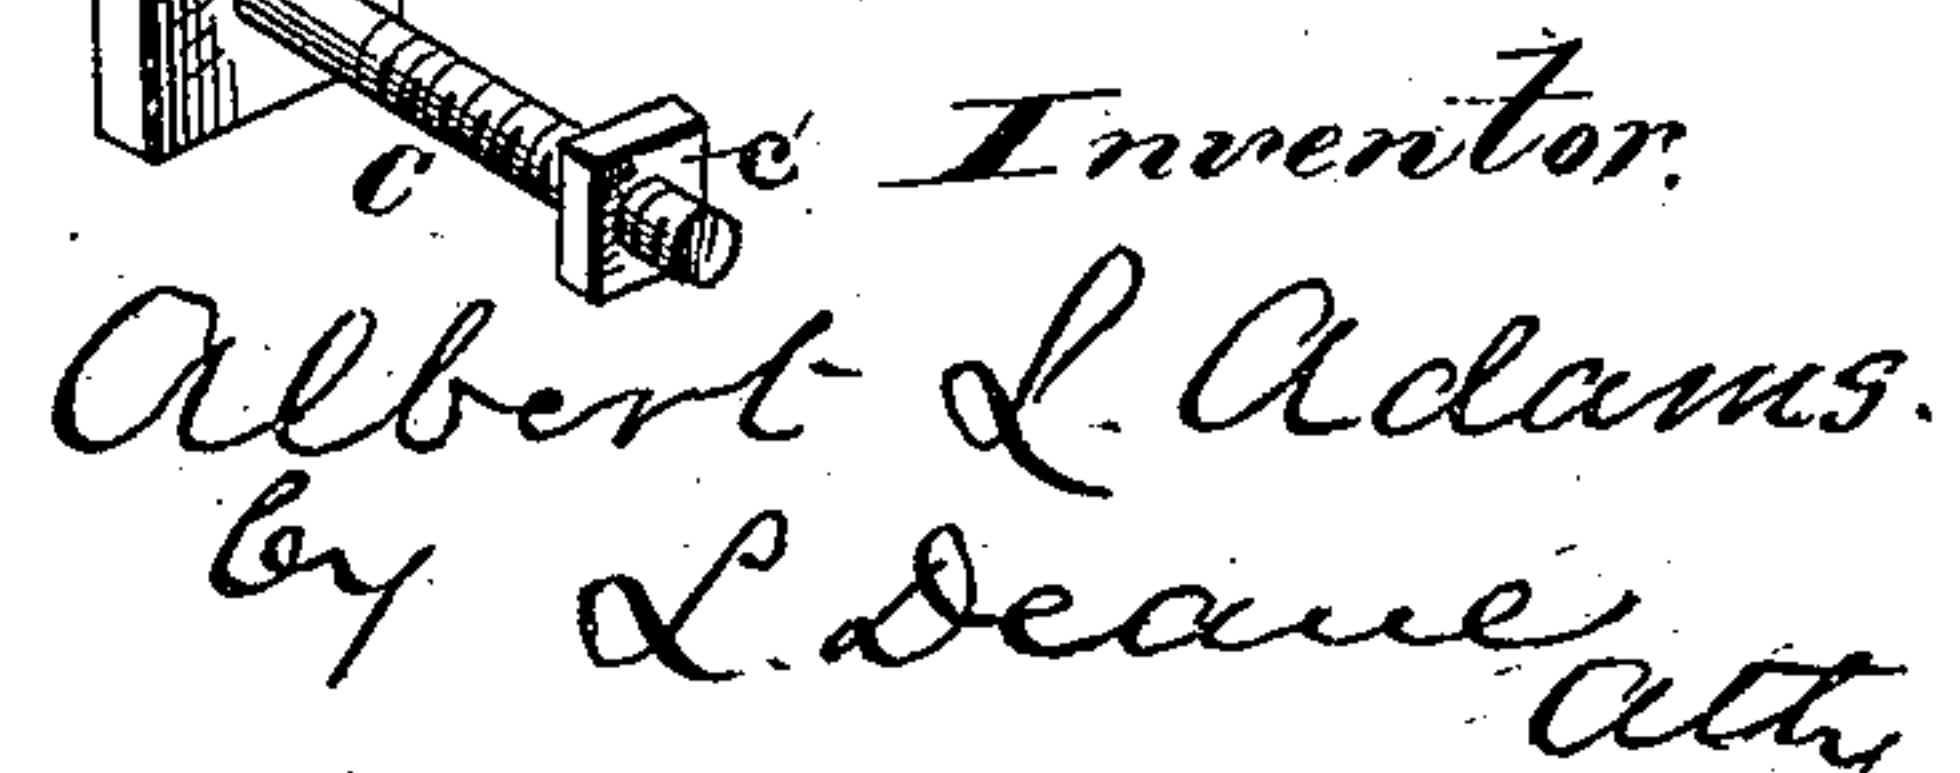 c c' Inventor.
Albert L. Adams.
by L. Deane
Atty